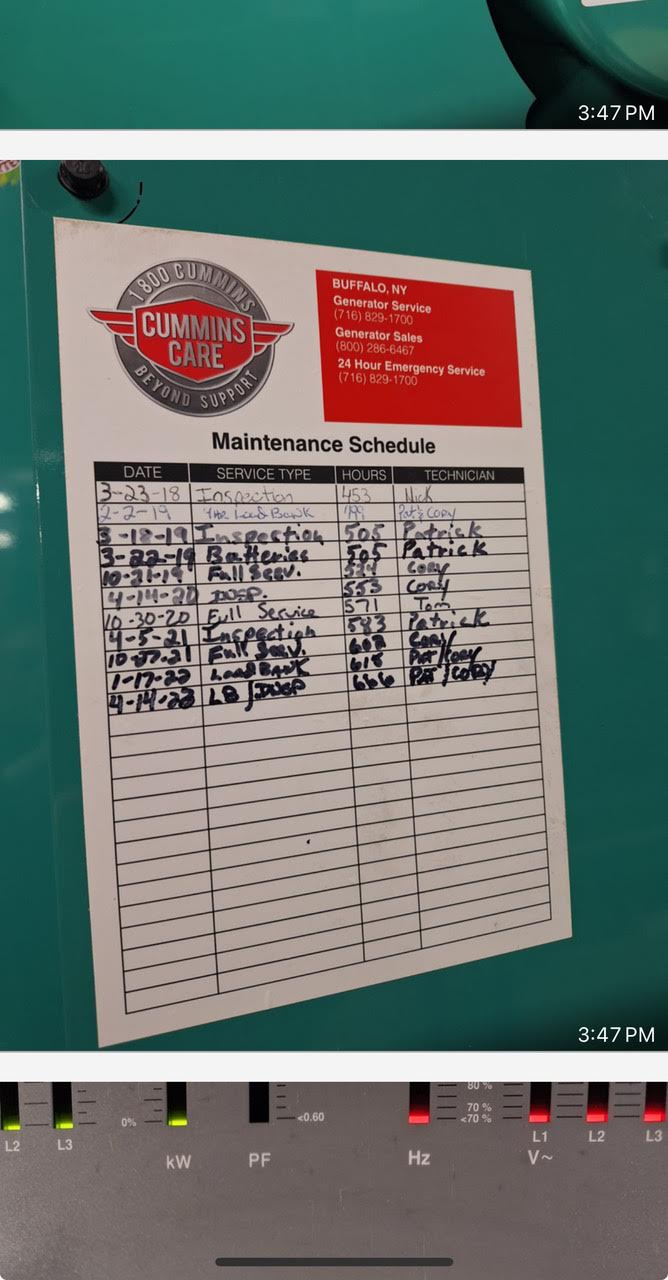 3:47 PM
1 800 CUMMINS
CUMMINS
CARE
BEYOND SUPPORT
BUFFALO, NY
Generator Service
(716) 829-1700
Generator Sales
(800) 286-6467
24 Hour Emergency Service
(716) 829-1700
Maintenance Schedule
DATE SERVICE TYPE HOURS TECHNICIAN
3-23-18 Inspection 453 Nick
2-2-19 4HR Load Bank 499 Pat & Cory
3-18-19 Inspection 505 Patrick
3-22-19 Batteries 505 Patrick
10-21-19 Full Serv. Cory
4-14-20 INSP. 553 Cory
10-30-20 Full Service 571 Tom
4-5-21 Inspection 583 Patrick
10-27-21 Full Serv. 608 Cory
1-17-22 Load BANK 618 PAT/Cory
4-14-22 LB/INSP 666 PAT/CORY
3:47 PM
80 %
70 %
<70 %
0%
<0.60
L2 L3 kW PF Hz L1 L2 L3
V~